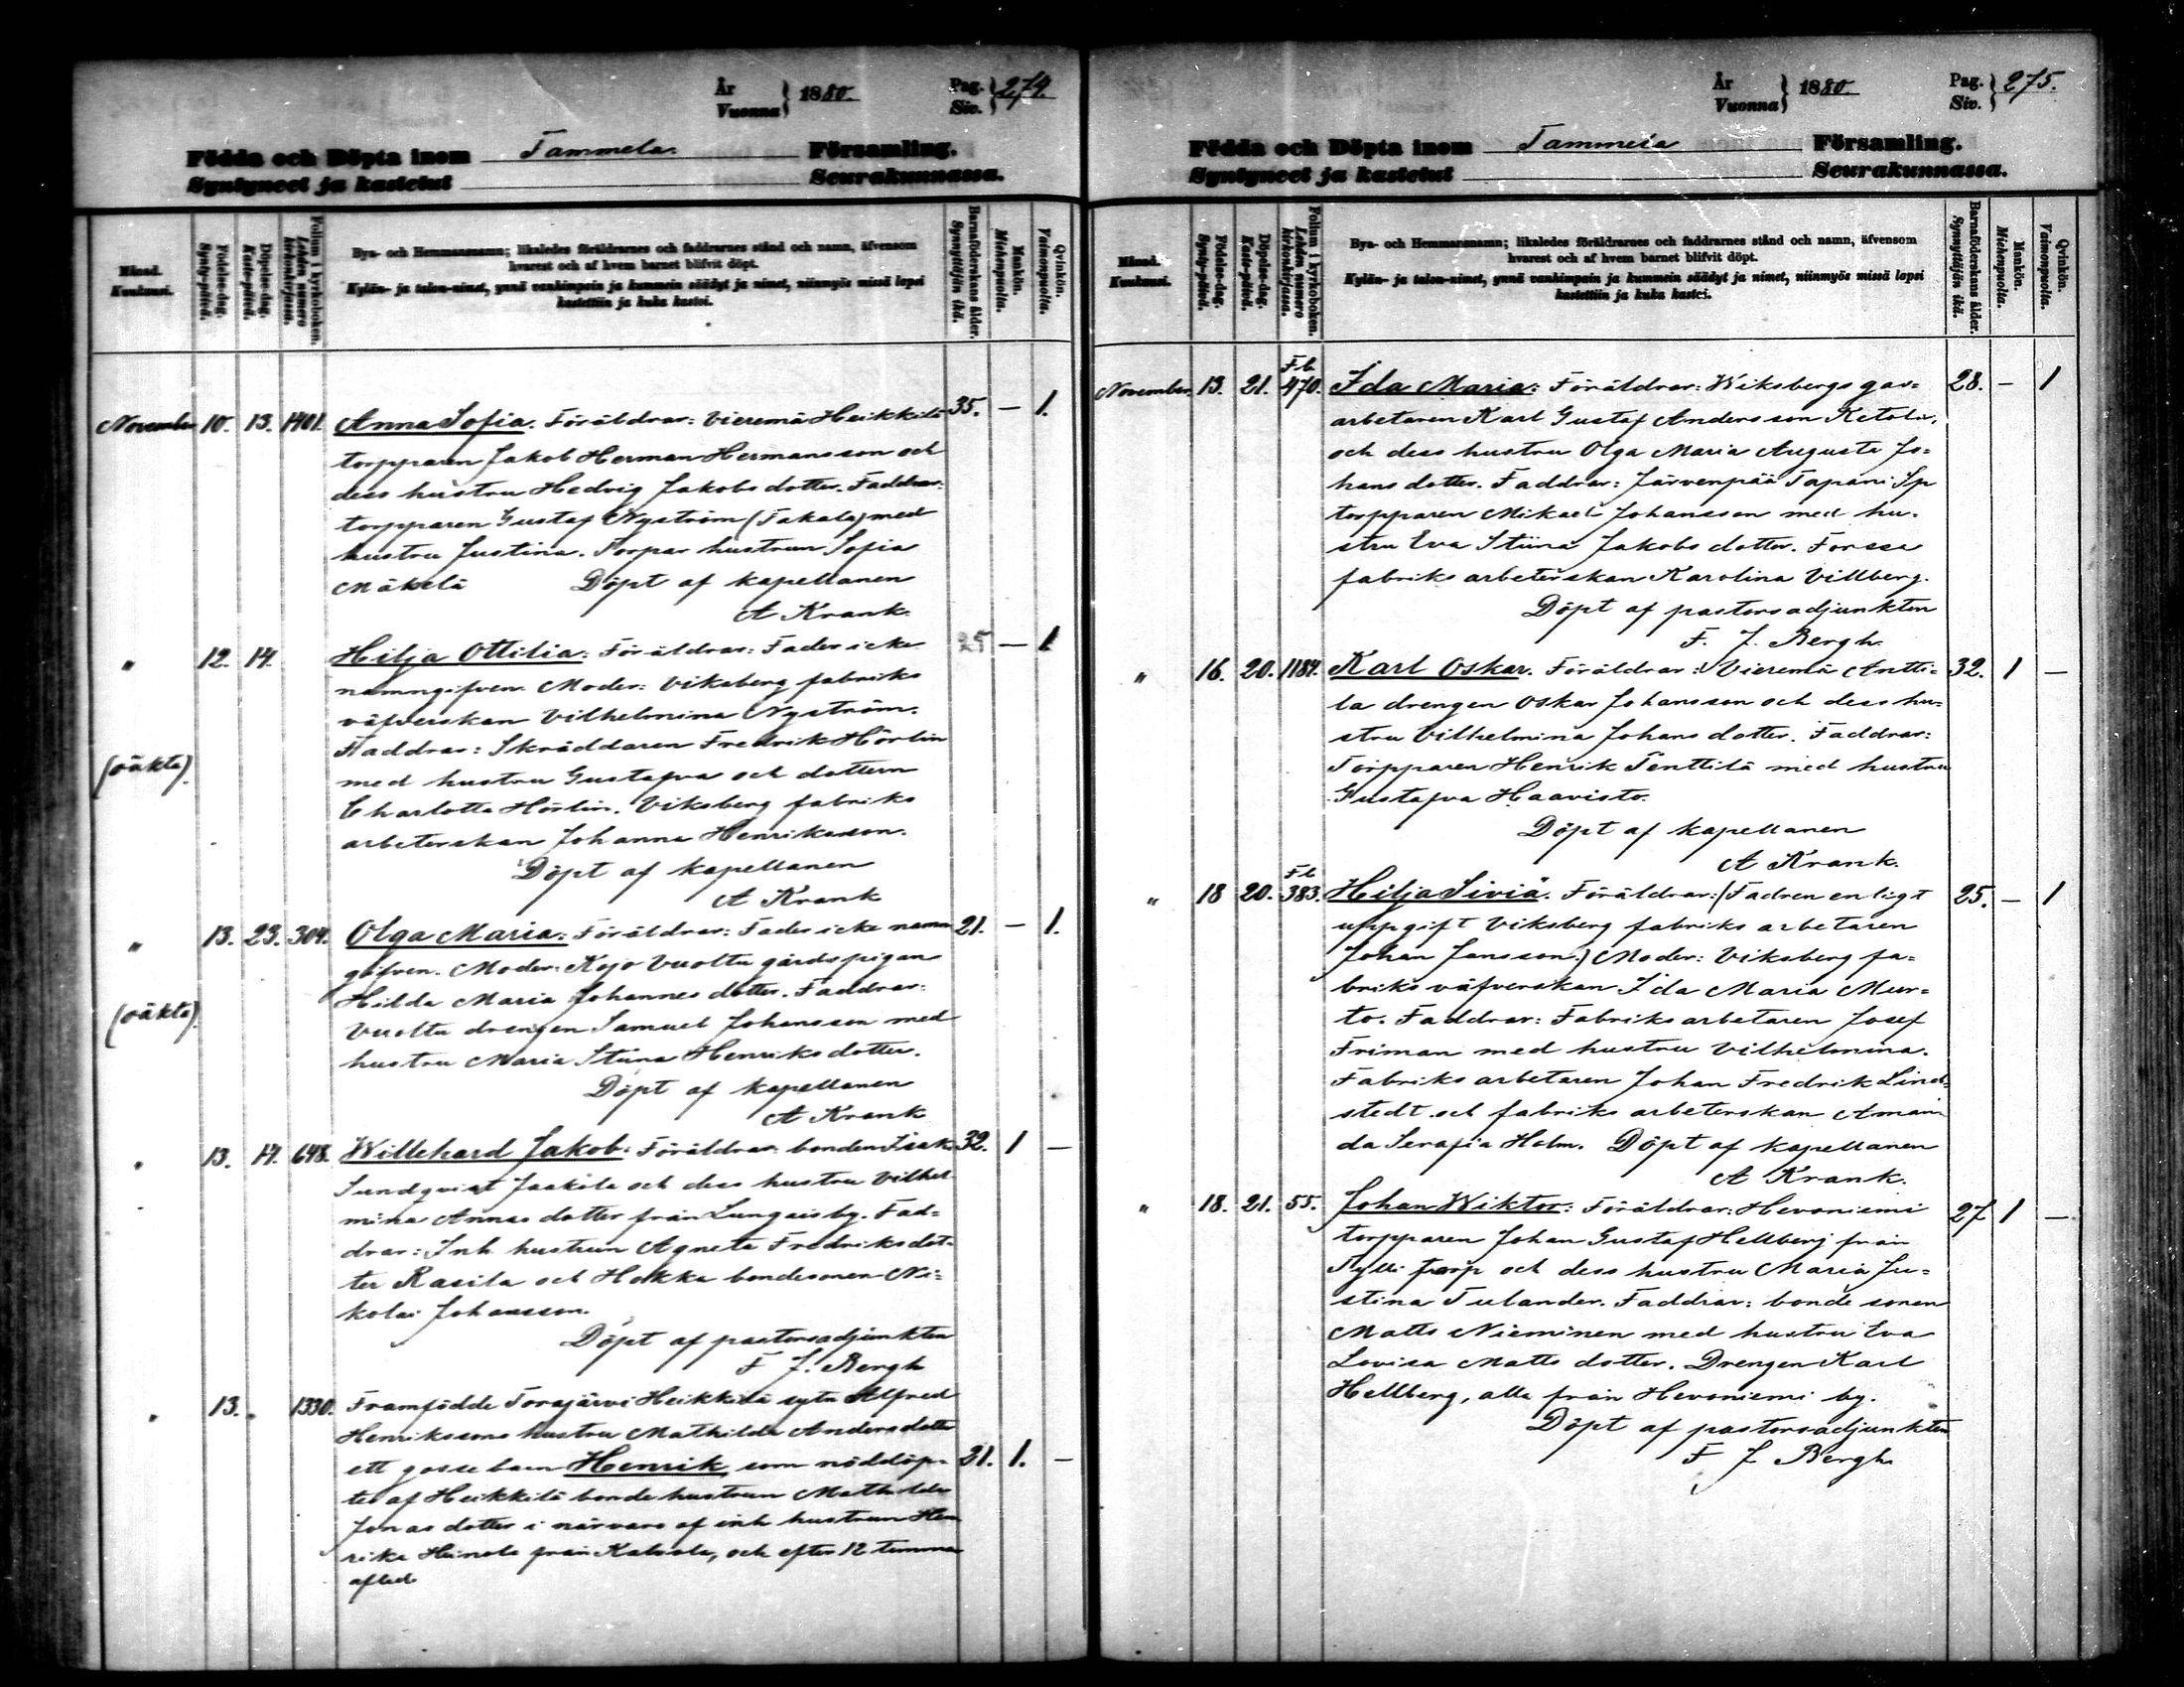 År
Vuonna } 1880.
Pag.
Siv. } 274.
Födda och Döpta inom Tammela Församling.
Syntyneet ja kastetut Seurakunnassa.
Månad.
Kuukausi.
Födelse-dag.
Synty-päivä.
Döpelse-dag.
Kaste-päivä.
Folium i kyrkoboken.
Lehden numero kirkonkirjassa.
Bya- och Hemmansnamn; likaledes föräldrarnes och faddrarnes stånd och namn, äfvensom
hvarest och af hvem barnet blifvit döpt.
Kylän- ja talon-nimet, ynnä vanhimpain ja kummein säädyt ja nimet, niinmyös missä lapsi
kastettiin ja kuka kastoi.
Barnaföderskans ålder.
Synnyttäjän ikä.
Mankön.
Miehenpuolta.
Qvinkön.
Vaimonpuolta.
November 10. 13. 1401. Anna Sofia. Föräldrar: Vieremä Heikkilä 35. — 1.
torpparen Jakob Herman Hermansson och
dess hustru Hedvig Jakobsdotter. Faddrar:
torpparen Gustaf Nyström (Takala) med
hustru Justina. Torpar hustrun Sofia
Mäkelä Döpt af kapellanen
A Krank.
" 12. 14. Hilja Ottilia: Föräldrar: Fader icke 25 — 1
namngifven. Moder: Viksberg fabriks
väfverskan Vilhelmina Nyström.
Faddrar: Skräddaren Fredrik Hörlin
(oäkta) med hustru Gustafva och dottern
Charlotta Hörlin. Viksberg fabriks
arbeterskan Johanna Henriksson.
Döpt af kapellanen
A Krank
" 13. 23. 304. Olga Maria: Föräldrar: Fader icke namn 21. — 1.
gifven. Moder: Kojo Vuoltu gårdspigan
Hilda Maria Johannesdotter. Faddrar:
(oäkta) Vuoltu drengen Samuel Johansson med
hustru Maria Stina Henriksdotter.
Döpt af kapellanen
A Krank
" 13. 14. 648. Willehard Jakob: Föräldrar: bonden Isak 32. 1 —
Sundqvist Jaakila och dess hustru Vilhel
mina Annasdotter från Lunguisby. Fad=
drar: Inh hustrun Agneta Fredriksdot-
ter Rasila och Hokka bondesonen Ni=
kolai Johansson.
Döpt af pastorsadjunkten
F J. Bergh
" 13. " 1330. Framfödde Torajärvi Heikkilä sytn Alfred
Henrikssons hustru Mathilda Andersdotter
ett gossebarn Henrik, som nöddöp- 21. 1. —
tes af Heikkilä bonde hustrun Mathilda
Jonasdotter i närvaro af inh hustrun Hen
rika Heinola från Kaloila, och efter 12 timmar
afled.
År
Vuonna } 1880.
Pag.
Siv. } 275.
Födda och Döpta inom Tammela Församling.
Syntyneet ja kastetut Seurakunnassa.
Månad.
Kuukausi.
Födelse-dag.
Synty-päivä.
Döpelse-dag.
Kaste-päivä.
Folium i kyrkoboken.
Lehden numero kirkonkirjassa.
Bya- och Hemmansnamn; likaledes föräldrarnes och faddrarnes stånd och namn, äfvensom
hvarest och af hvem barnet blifvit döpt.
Kylän- ja talon-nimet, ynnä vanhimpain ja kummein säädyt ja nimet, niinmyös missä lapsi
kastettiin ja kuka kastoi.
Barnaföderskans ålder.
Synnyttäjän ikä.
Mankön.
Miehenpuolta.
Qvinkön.
Vaimonpuolta.
Fb
November 13. 21. 470. Ida Maria: Föräldrar: Wiksbergs gas= 28. — 1
arbetaren Karl Gustaf Andersson Ketola,
och dess hustru Olga Maria Augusta Jo=
hansdotter. Faddrar: Järvenpää Tapani Sp
torpparen Mikael Johansson med hu-
stru Eva Stiina Jakobsdotter. Forssa
fabriks arbeterskan Karolina Villberg.
Döpt af pastorsadjunkten
F. J. Bergh.
" 16. 20. 1184. Karl Oskar. Föräldrar: Vieremä Antti= 32. 1 —
la drengen Oskar Johansson och dess hu=
stru Vilhelmina Johansdotter. Faddrar:
Torpparen Henrik Tenttilä med hustru
Gustafva Haavisto.
Döpt af kapellanen
A Krank.
Fb
" 18 20. 383. Hilja Siviä. Föräldrar: (Fadren enligt 25. — 1
uppgift Viksberg fabriks arbetaren
Johan Jansson.) Moder: Viksberg fa=
briks väfverskan Ida Maria Mur=
to. Faddrar: Fabriks arbetaren Josef
Friman med hustru Vilhelmina.
Fabriks arbetaren Johan Fredrik Lind=
stedt och fabriks arbeterskan Aman
da Serafia Holm. Döpt af kapellanen
A Krank.
" 18. 21. 55. Johan Wiktor: Föräldrar: Hevoniemi 27 1 —
torpparen Johan Gustaf Hellberg från
Tylli torp och dess hustru Maria Ju=
stina Tulander. Faddrar: bondesonen
Matts Nieminen med hustru Eva
Lovisa Mattsdotter. Drengen Karl
Hellberg, alla från Hevoniemi by.
Döpt af pastorsadjunkten
F J Bergh